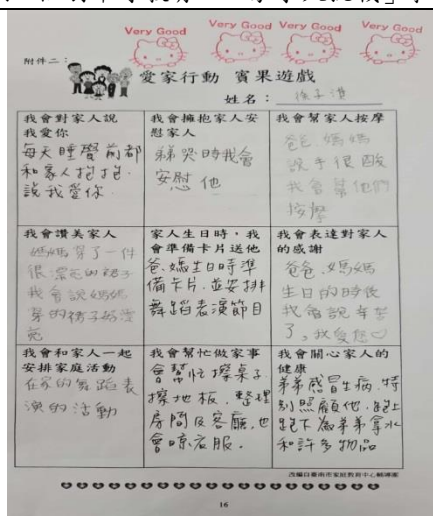 Very Good Very Good Very Good Very Good
附件二：
愛家行動 賓果遊戲
姓名：
我會對家人說
我愛你
每天睡覺前都
和家人抱抱.
說我愛你.
我會擁抱家人安
慰家人
弟哭時我會
安慰他
我會幫家人按摩
爸.媽媽
說手很酸
我會幫他們
按摩
我會讚美家人
媽媽穿了一件
很漂亮的裙子
我會說媽媽
穿的裙子好漂
亮
家人生日時，我
會準備卡片送他
爸.媽生日時準
備卡片.並安排
舞蹈表演節目
我會表達對家人
的感謝
爸爸.媽媽
生日的時候
我會說辛苦
了,我愛您♡
我會和家人一起
安排家庭活動
在家的舞蹈表
演的活動
我會幫忙做家事
會幫忙擦桌子.
擦地板.整理
房間及客廳,也
會晾衣服.
我會關心家人的
健康
弟弟感冒生病.特
別照顧他.跑上
跑下為弟弟拿水
和許多物品
改編自臺南市家庭教育中心輔導團
16